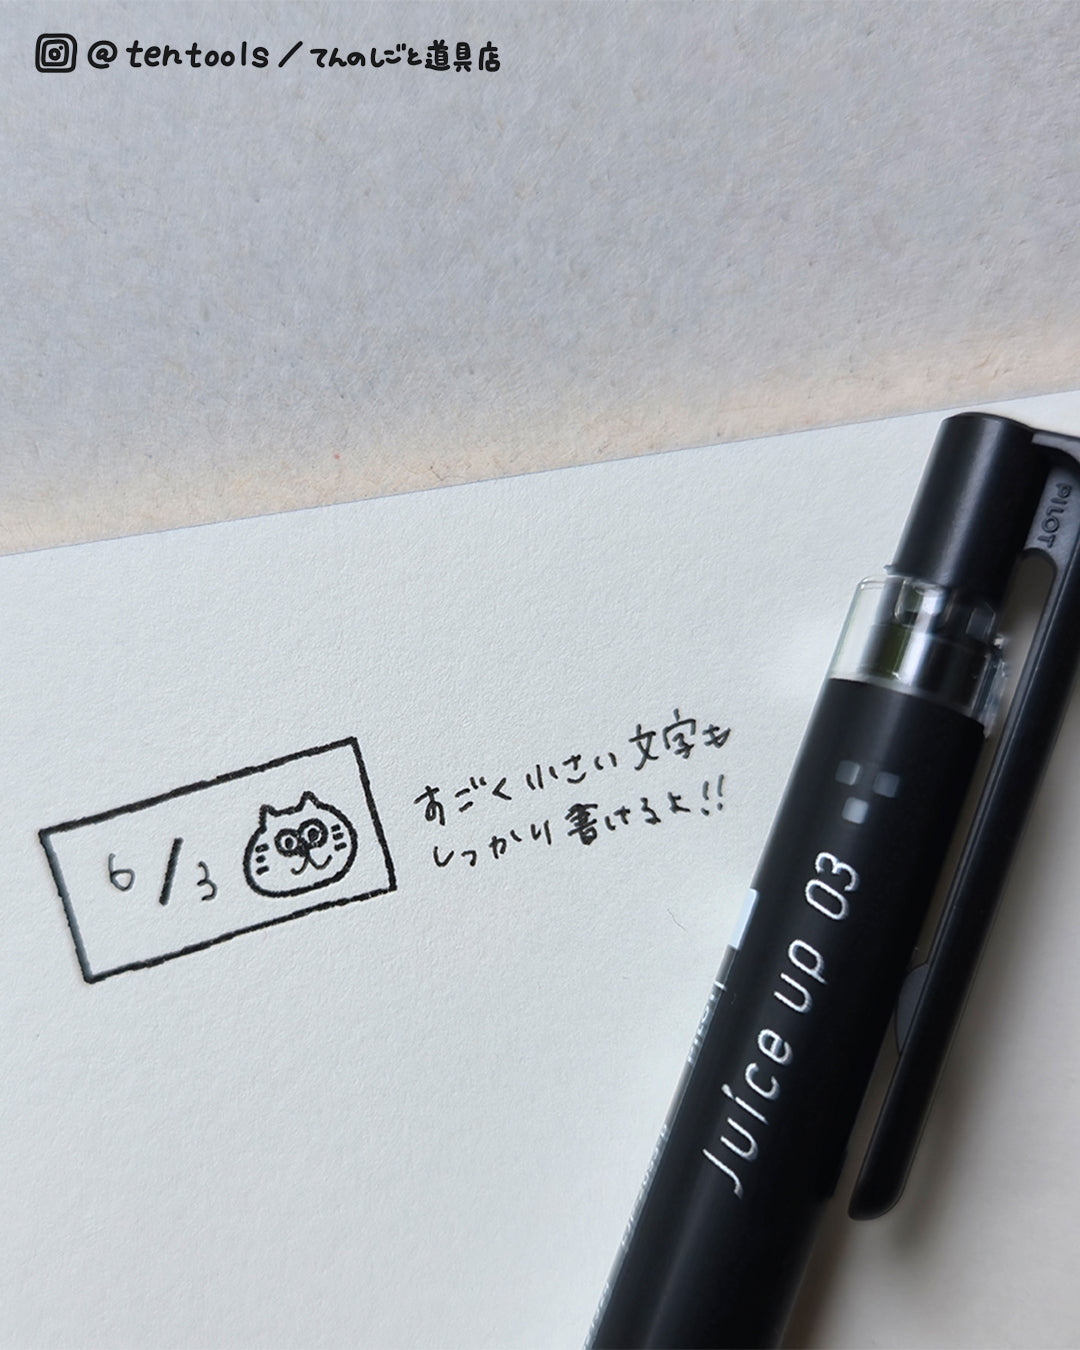 @tentools/てんのしごと道具店
PILOT
6/3
すごく小さい文字も
しっかり書けるよ!!
Juice up 03